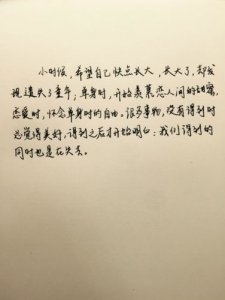 小时候，希望自己快点长大，长大了，却发
现遗失了童年；单身时，开始羡慕恋人间的甜蜜，
恋爱时，怀念单身时的自由。很多事物，没有得到时
总觉得美好，得到之后才开始明白：我们得到的
同时也是在失去。